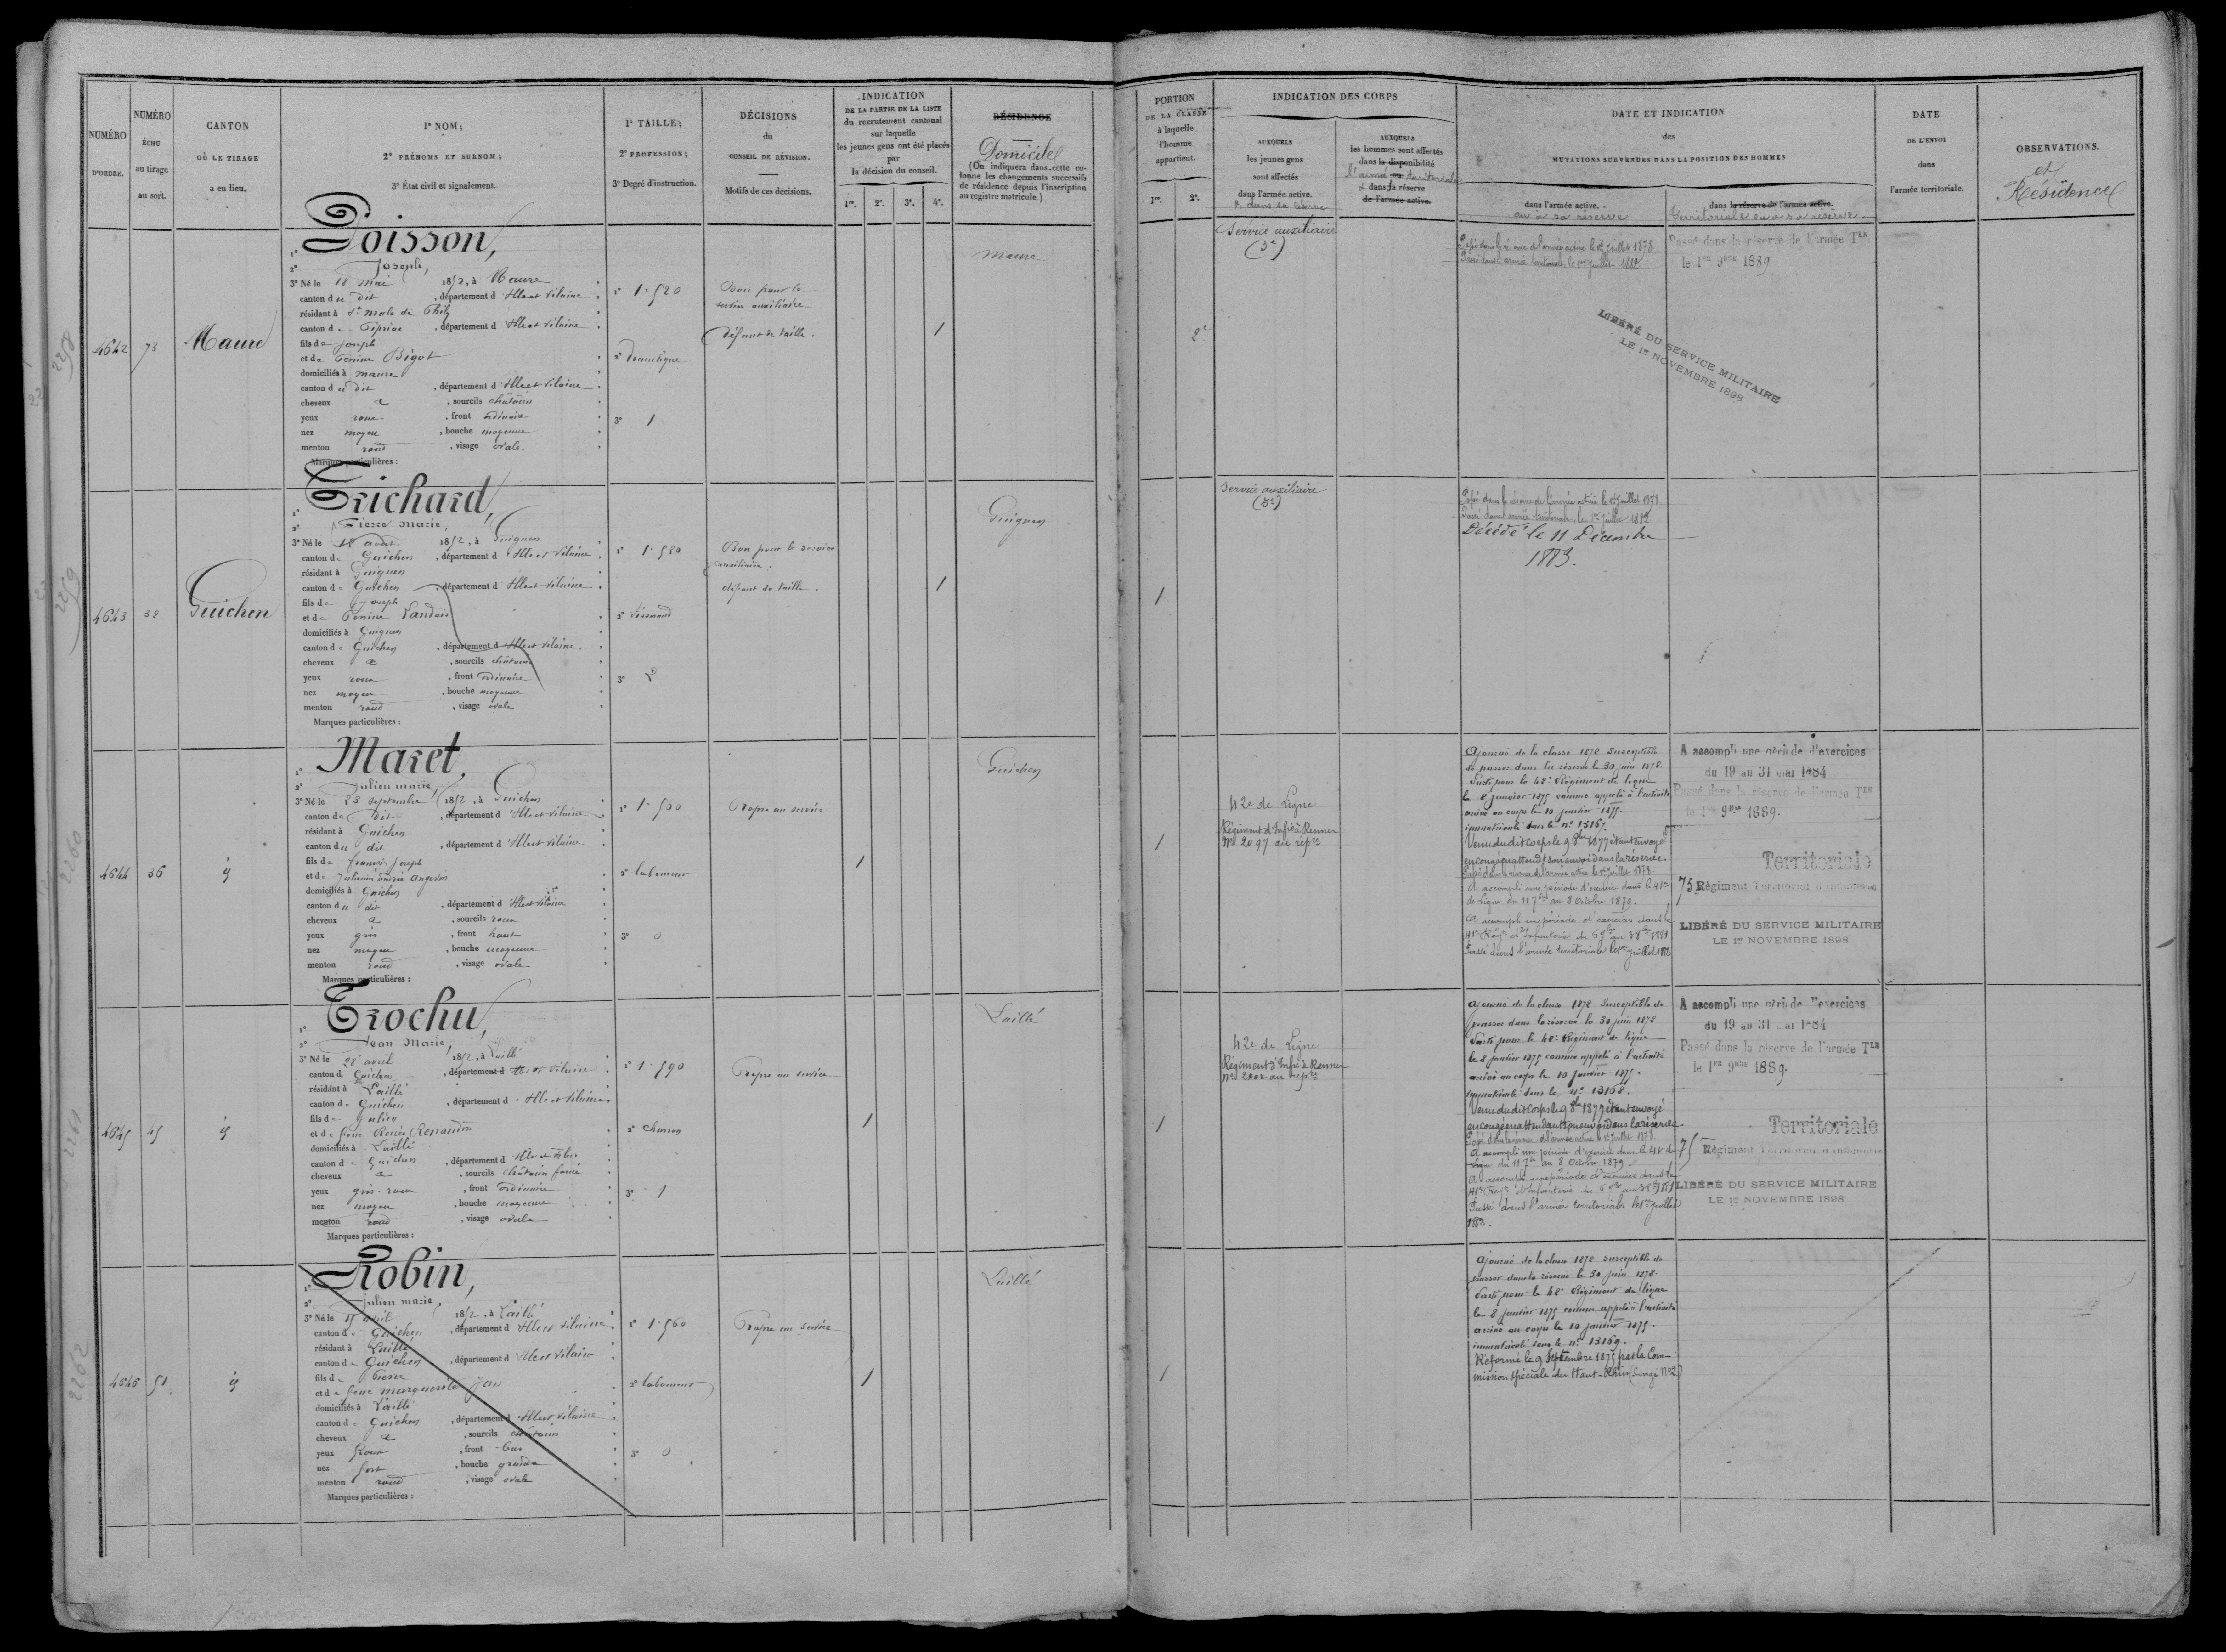 NUMÉRO D'ORDRE.
NUMÉRO ÉCHU au tirage au sort.
CANTON OÙ LE TIRAGE a eu lieu.
1° NOM;
2° PRÉNOMS ET SURNOM;
3° État civil et signalement.
1° TAILLE;
2° PROFESSION;
3° Degré d'instruction.
DÉCISIONS du CONSEIL DE RÉVISION.
Motifs de ces décisions.
INDICATION
DE LA PARTIE DE LA LISTE
du recrutement cantonal
sur laquelle
les jeunes gens ont été placés
par
la décision du conseil.
1re. 2e. 3e. 4e.
RÉSIDENCE
Domicile
(On indiquera dans cette colonne les changements successifs de résidence depuis l'inscription au registre matricule.)
PORTION
DE LA CLASSE
à laquelle
l'homme
appartient.
1re. 2e.
INDICATION DES CORPS
AUXQUELS
les jeunes gens
sont affectés
dans l'armée active.
& dans sa réserve
AUXQUELS
les hommes sont affectés
dans la disponibilité
l'armée ou territoriale
& dans sa réserve
de l'armée active.
DATE ET INDICATION
des
MUTATIONS SURVENUES DANS LA POSITION DES HOMMES
dans l'armée active.
ou à sa réserve
dans la réserve de l'armée active.
territoriale ou à sa réserve.
DATE
DE L'ENVOI
dans
l'armée territoriale.
OBSERVATIONS.
et
Résidence
2258
4642 73 Maure
1° Poisson,
2° Joseph,
3° Né le 18 mai 1852, à Maure
canton du dit, département d'Ille et Vilaine
résidant à St Malo de Phily
canton de Pipriac, département d'Ille et Vilaine
fils de Joseph
et de Perrine Bigot
domiciliés à Maure
canton du dit, département d'Ille et Vilaine
cheveux &, sourcils châtain
yeux roux, front ordinaire
nez moyen, bouche moyenne
menton rond, visage ovale
Marques particulières :
1° 1.520
2° domestique
3° 1
Bon pour le
service auxiliaire
défaut de taille.
1
Maure
2e
Service auxiliaire
(3e)
Passé dans l'armée territoriale le 1er juillet 1882
Passé dans la réserve de l'armée Tle
le 1er 9bre 1889
LIBÉRÉ DU SERVICE MILITAIRE
LE 1er NOVEMBRE 1898
2259
4643 38 Guichen
1° Trichard,
2° Pierre Marie,
3° Né le 18 août 1852, à Guignen
canton de Guichen, département d'Ille et Vilaine
résidant à Guignen
canton de Guichen, département d'Ille et Vilaine
fils de Joseph
et de Perrine Landais
domiciliés à Guignen
canton de Guichen, département d'Ille et Vilaine
cheveux &, sourcils châtain
yeux roux, front ordinaire
nez moyen, bouche moyenne
menton rond, visage ovale
Marques particulières :
1° 1.520
2° tisserand
3° 2
Bon pour le service
auxiliaire.
défaut de taille.
1
Guignen
1
Service auxiliaire
(3e)
Passé dans l'armée territoriale le 1er juillet 1882
Décédé le 11 Décembre
1883.
2260
4644 36 id
1° Maret,
2° Julien marie,
3° Né le 25 septembre 1852, à Guichen
canton du dit, département d'Ille et Vilaine
résidant à Guichen
canton du dit, département d'Ille et Vilaine
fils de françois Joseph
et de Julienne Angevin
domiciliés à Guichen
canton du dit, département d'Ille et Vilaine
cheveux &, sourcils roux
yeux gris, front haut
nez moyen, bouche moyenne
menton rond, visage ovale
Marques particulières :
2° laboureur
3° 0
Propre au service
1
Guichen
1
42e de Ligne
Régiment d'Infie à Rennes
No 2097 au répre
Ajourné de la classe 1872 Susceptible
de passer dans la réserve le 30 juin 1878.
Parti pour le 42e Régiment de ligne
le 8 janvier 1875 comme appelé à l'activité
arrivé au corps le 10 janvier 1875.
immatriculé sous le n° 13167.
Venu dudit corps le 9 8bre 1877 étant envoyé
en congé en attendt son envoi dans la réserve.
A accompli une période d'exercice dans le 41e
de Ligne du 11 7bre au 8 octobre 1879.
Passé dans l'armée territoriale le 1er juillet 1882
A accompli une période d'exercices
du 19 au 31 mai 1884
Passé dans la réserve de l'armée Tle
le 1er 9bre 1889.
Territoriale
75 Régiment Territorial d'Infanterie
LIBÉRÉ DU SERVICE MILITAIRE
LE 1er NOVEMBRE 1898
2261
4645 45 id
1° Trochu,
2° Jean Marie,
3° Né le 28 avril 1852, à Laillé
canton de Guichen, département d'Ille et Vilaine
résidant à Laillé
canton de Guichen, département d'Ille et Vilaine
fils de Julien
et de feue Renée Renaudin
domiciliés à Laillé
canton de Guichen, département d'Ille et Vilaine
cheveux &, sourcils châtain foncé
yeux gris-roux, front ordinaire
nez moyen, bouche moyenne
menton rond, visage ovale
Marques particulières :
1° 1.590
2° charron
3° 1
Propre au service
1
Laillé
1
42e de Ligne
Régiment d'Infie à Rennes
Ajourné de la classe 1872 Susceptible de
passer dans la réserve le 30 juin 1878
Parti pour le 42e Régiment de ligne
le 8 janvier 1875 comme appelé à l'activité
arrivé au corps le 10 janvier 1875.
immatriculé sous le n° 13168.
Venu dudit corps le 9 8bre 1877 étant envoyé
en congé en attendant son envoi dans la réserve.
Ligne du 11 7bre au 8 octobre 1879.
Passé dans l'armée territoriale le 1er juillet
1882.
A accompli une période d'exercices
du 19 au 31 mai 1884
Passé dans la réserve de l'armée Tle
le 1er 9bre 1889.
Territoriale
75 Régiment Territorial d'Infanterie
LIBÉRÉ DU SERVICE MILITAIRE
LE 1er NOVEMBRE 1898
2262
4646 51 id
1° Robin,
2° Julien marie,
3° Né le 15 avril 1852, à Laillé
canton de Guichen, département d'Ille et Vilaine
résidant à Laillé
canton de Guichen, département d'Ille et Vilaine
fils de Pierre
et de feue marguerite Jan
domiciliés à Laillé
canton de Guichen, département d'Ille et Vilaine
cheveux &, sourcils châtain
yeux roux, front bas
nez fort, bouche grande
menton rond, visage ovale
Marques particulières :
1° 1.560
2° laboureur
3° 0
Propre au service
1
Laillé
1
Ajourné de la classe 1872 susceptible de
passer dans la réserve le 30 juin 1878.
Parti pour le 42e Régiment de ligne
le 8 janvier 1875 comme appelé à l'activité
arrivé au corps le 10 janvier 1875.
immatriculé sous le n° 13169.
Réformé le 9 Septembre 1875 par la Com-
mission spéciale du Haut-Rhin (Congé No 2)